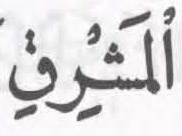 اْلمَشْرِقِ